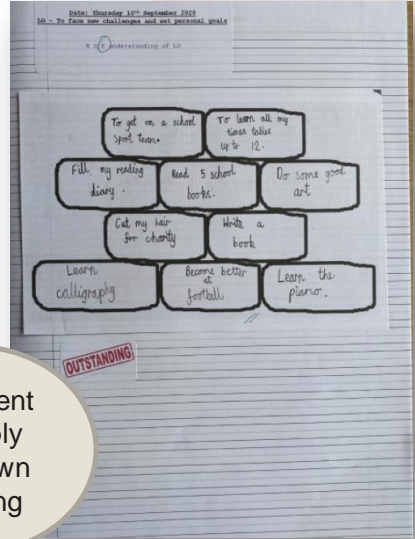 Date: Thursday 10th September 2020
LO - To face new challenges and set personal goals
R D E understanding of LO
To get on a school
sport team.
To learn all my
times tables
up to 12.
Fill my reading
diary.
Read 5 school
books.
Do some good
art
Cut my hair
for charity
Write a
book
Learn
calligraphy
Become better
at
football
Learn the
piano.
OUTSTANDING